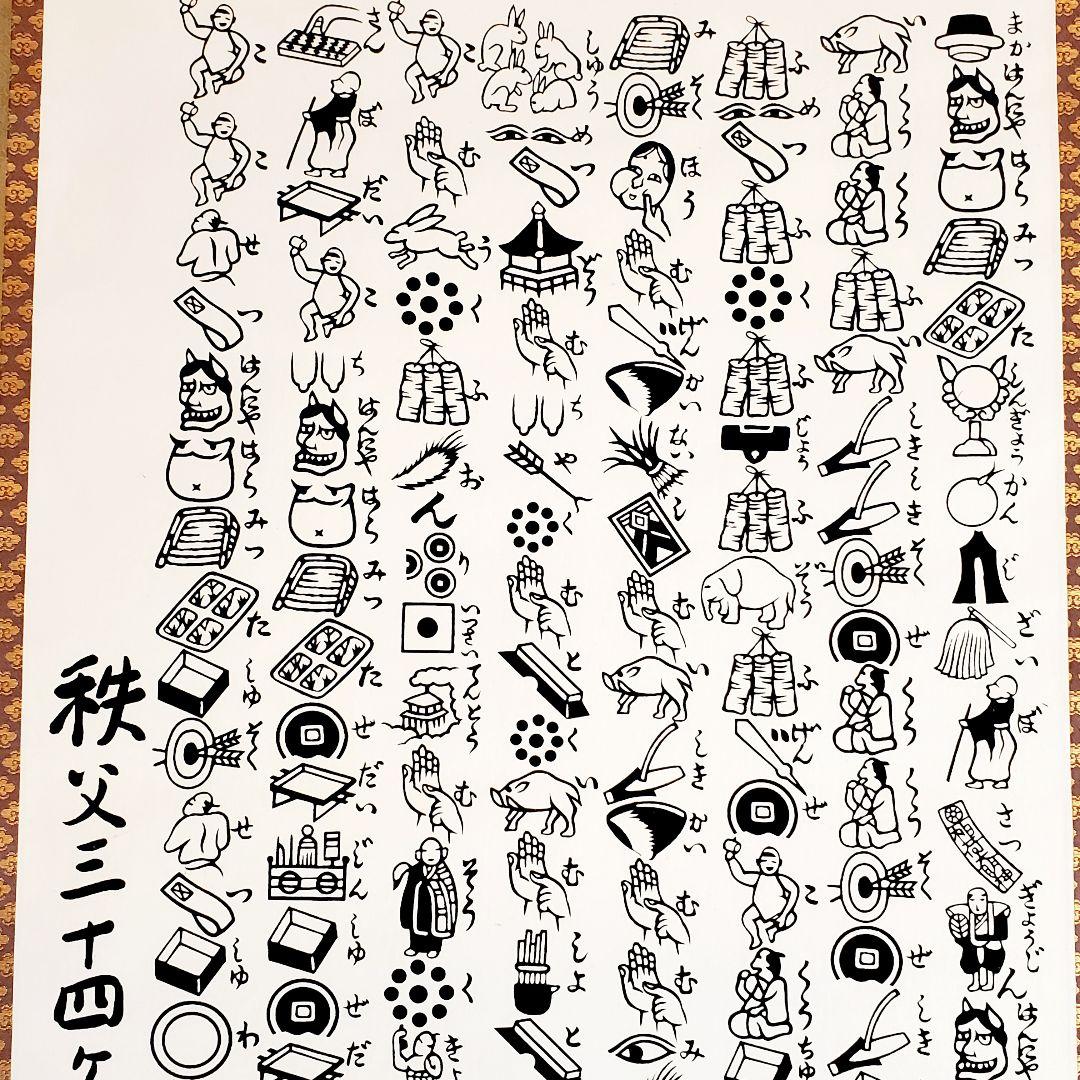 まか はんにゃ はら みつ た しんぎょう かん じ ざい ぼ さつ ぎょうじん はんにゃ
い くう くう ふ い しき しき そく ぜ くう くう そく ぜ しき
ふ めつ ふ く ふ じょう ふ ぞう ふ げん ぜ こ くう ちゅ
みつ そく ほう む げん かい ない し む い しき かい む む み
しゅう め つ どう む ち や く む と く い む しよ と
こ む う く ふ おんり いっさい てんどう む そう く きょ
さん ぼ だい こ ち はんにゃ はら みつ た ぜ だい じん しゅ ぜ だ
こ こ せ つ はんにゃ はら みつ た しゅ そく せ つ しゅ わ
秩父三十四ケ